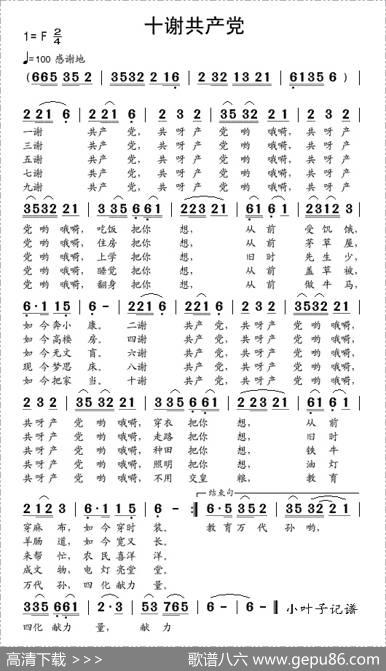 十谢共产党
1=F 2/4
♩=100 感谢地
(665 35 2 | 3532 2 16 | 2 32 13 21 | 61356 ) |
2 221 6 | 2 221 6 | 2 3 2 | 35 32 21 | 2 3 2 |
一谢 共产 党, 共呀产 党哟 哦嗬, 共呀产
三谢 共产 党, 共呀产 党哟 哦嗬, 共呀产
五谢 共产 党, 共呀产 党哟 哦嗬, 共呀产
七谢 共产 党, 共呀产 党哟 哦嗬, 共呀产
九谢 共产 党, 共呀产 党哟 哦嗬, 共呀产
3532 21 | 3 35 661 | 2 223 21 | 61 6 1 | 2312 3 |
党哟 哦嗬, 吃饭 把你 想, 从前 受饥饿,
党哟 哦嗬, 住房 把你 想, 从前 茅草屋,
党哟 哦嗬, 上学 把你 想, 旧时 先生少,
党哟 哦嗬, 睡觉 把你 想, 从前 盖草被,
党哟 哦嗬, 翻身 把你 想, 从前 做牛马,
6·1 15 | 6 - | 2 221 6 | 2 221 6 | 2 3 2 | 3532 21 |
如今奔小 康。 二谢 共产 党, 共呀产 党哟 哦嗬,
如今高楼 房。 四谢 共产 党, 共呀产 党哟 哦嗬,
如今无文 盲。 六谢 共产 党, 共呀产 党哟 哦嗬,
现今梦思 床。 八谢 共产 党, 共呀产 党哟 哦嗬,
如今把家 当。 十谢 共产 党, 共呀产 党哟 哦嗬,
2 3 2 | 35 32 21 | 3 35 6 61 | 2 223 21 | 6 61 |
共呀产 党哟 哦嗬, 穿衣 把你 想, 从前
共呀产 党哟 哦嗬, 走路 把你 想, 旧时
共呀产 党哟 哦嗬, 种田 把你 想, 铁牛
共呀产 党哟 哦嗬, 照明 把你 想, 油灯
共呀产 党哟 哦嗬, 不用 交皇 粮, 教育
结束句
2312 3 | 6·1 15 | 6 - :| 6·5 35 2 | 35 3221 |
穿麻布, 如今穿时 装。 教育万代 孙哟,
羊肠道, 如今宽又 长。
来帮忙, 农民喜洋 洋。
成文物, 电灯亮堂 堂。
万代孙, 四化献力 量。
335 661 | 2·3 | 53 765 | 6 - | 6 - | 小叶子记谱
四化献力 量, 献力 量。
高清下载 >>> 歌谱八六 www.gepu86.com